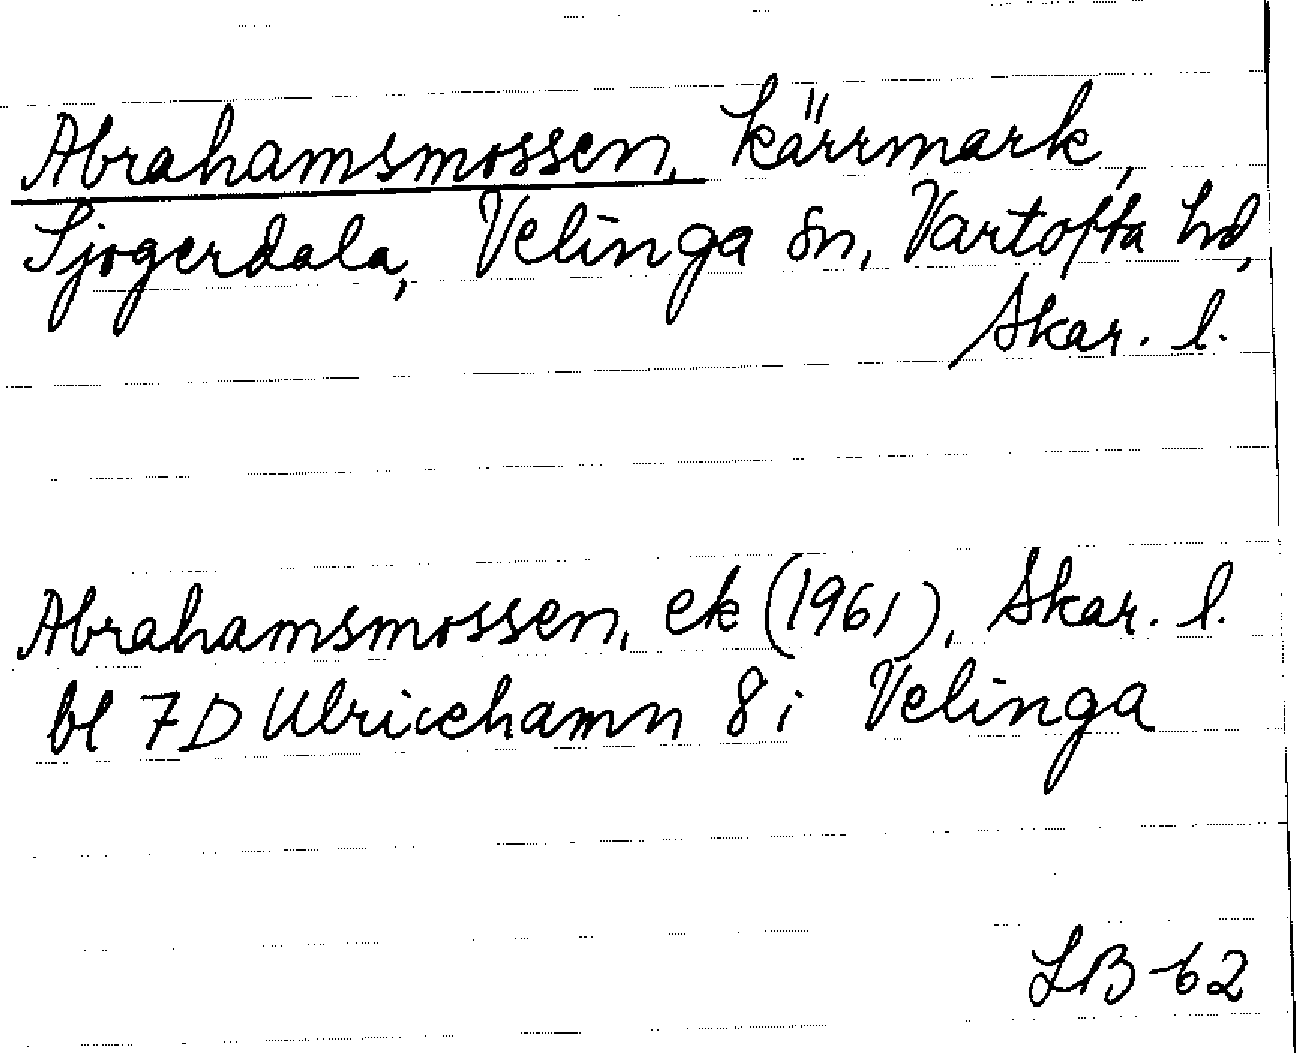 Abrahamsmossen, kärrmark,
Sjogerdala, Velinga sn, Vartofta hd,
Skar. l.
Abrahamsmossen, ek (1961), Skar. l.
bl 7D Ulricehamn 8 i Velinga
LB-62